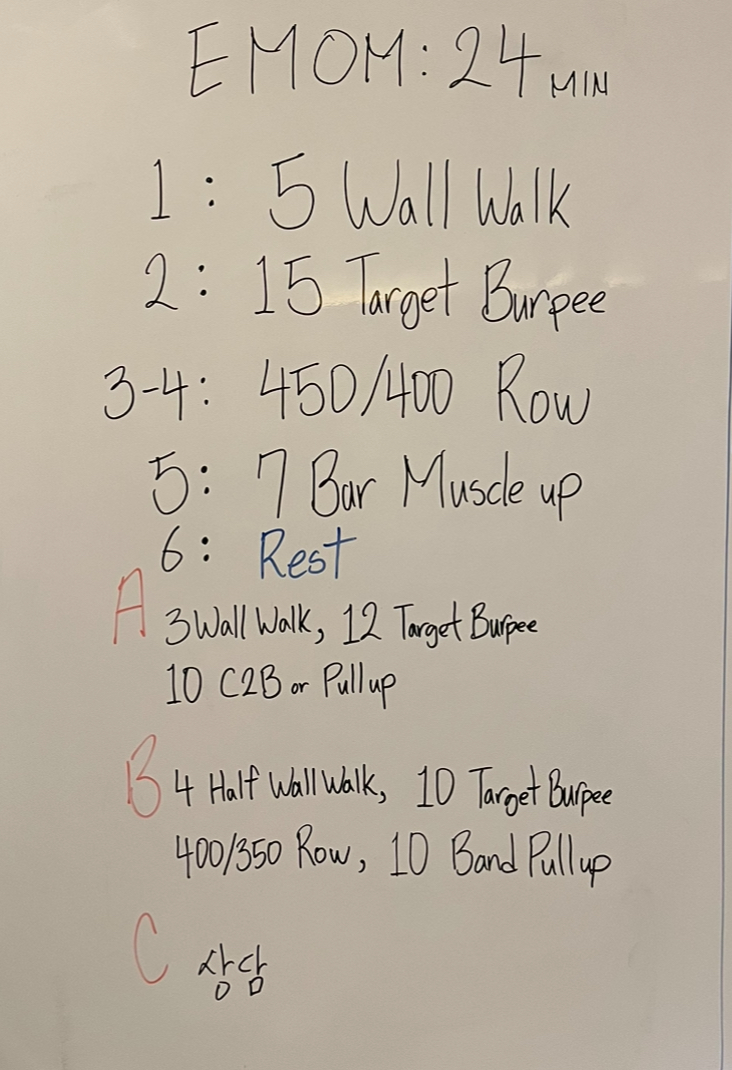 EMOM: 24 MIN
1: 5 Wall Walk
2: 15 Target Burpee
3-4: 450/400 Row
5: 7 Bar Muscle up
6: Rest
A 3 Wall Walk, 12 Target Burpee
10 C2B or Pull up
B 4 Half Wall Walk, 10 Target Burpee
400/350 Row, 10 Band Pull up
C 상담